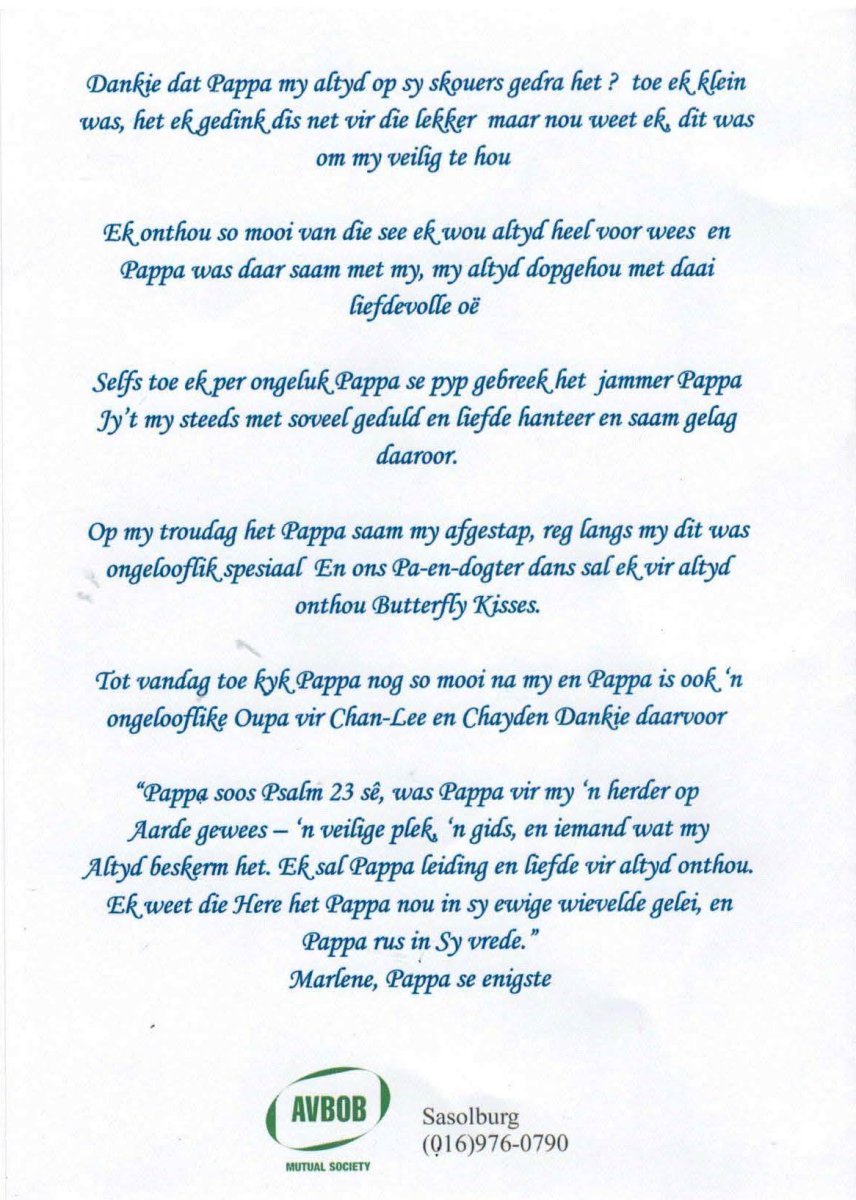 Dankie dat Pappa my altyd op sy skouers gedra het ? toe ek klein
was, het ek gedink dis net vir die lekker maar nou weet ek, dit was
om my veilig te hou
Ek onthou so mooi van die see ek wou altyd heel voor wees en
Pappa was daar saam met my, my altyd dopgehou met daai
liefdevolle oë
Selfs toe ek per ongeluk Pappa se pyp gebreek het jammer Pappa
Jy't my steeds met soveel geduld en liefde hanteer en saam gelag
daaroor.
Op my troudag het Pappa saam my afgestap, reg langs my dit was
ongelooflik spesiaal En ons Pa-en-dogter dans sal ek vir altyd
onthou Butterfly Kisses.
Tot vandag toe kyk Pappa nog so mooi na my en Pappa is ook 'n
ongelooflike Oupa vir Chan-Lee en Chayden Dankie daarvoor
"Pappa soos Psalm 23 sê, was Pappa vir my 'n herder op
Aarde gewees – 'n veilige plek, 'n gids, en iemand wat my
Altyd beskerm het. Ek sal Pappa leiding en liefde vir altyd onthou.
Ek weet die Here het Pappa nou in sy ewige wievelde gelei, en
Pappa rus in Sy vrede."
Marlene, Pappa se enigste
AVBOB
MUTUAL SOCIETY
Sasolburg
(016)976-0790